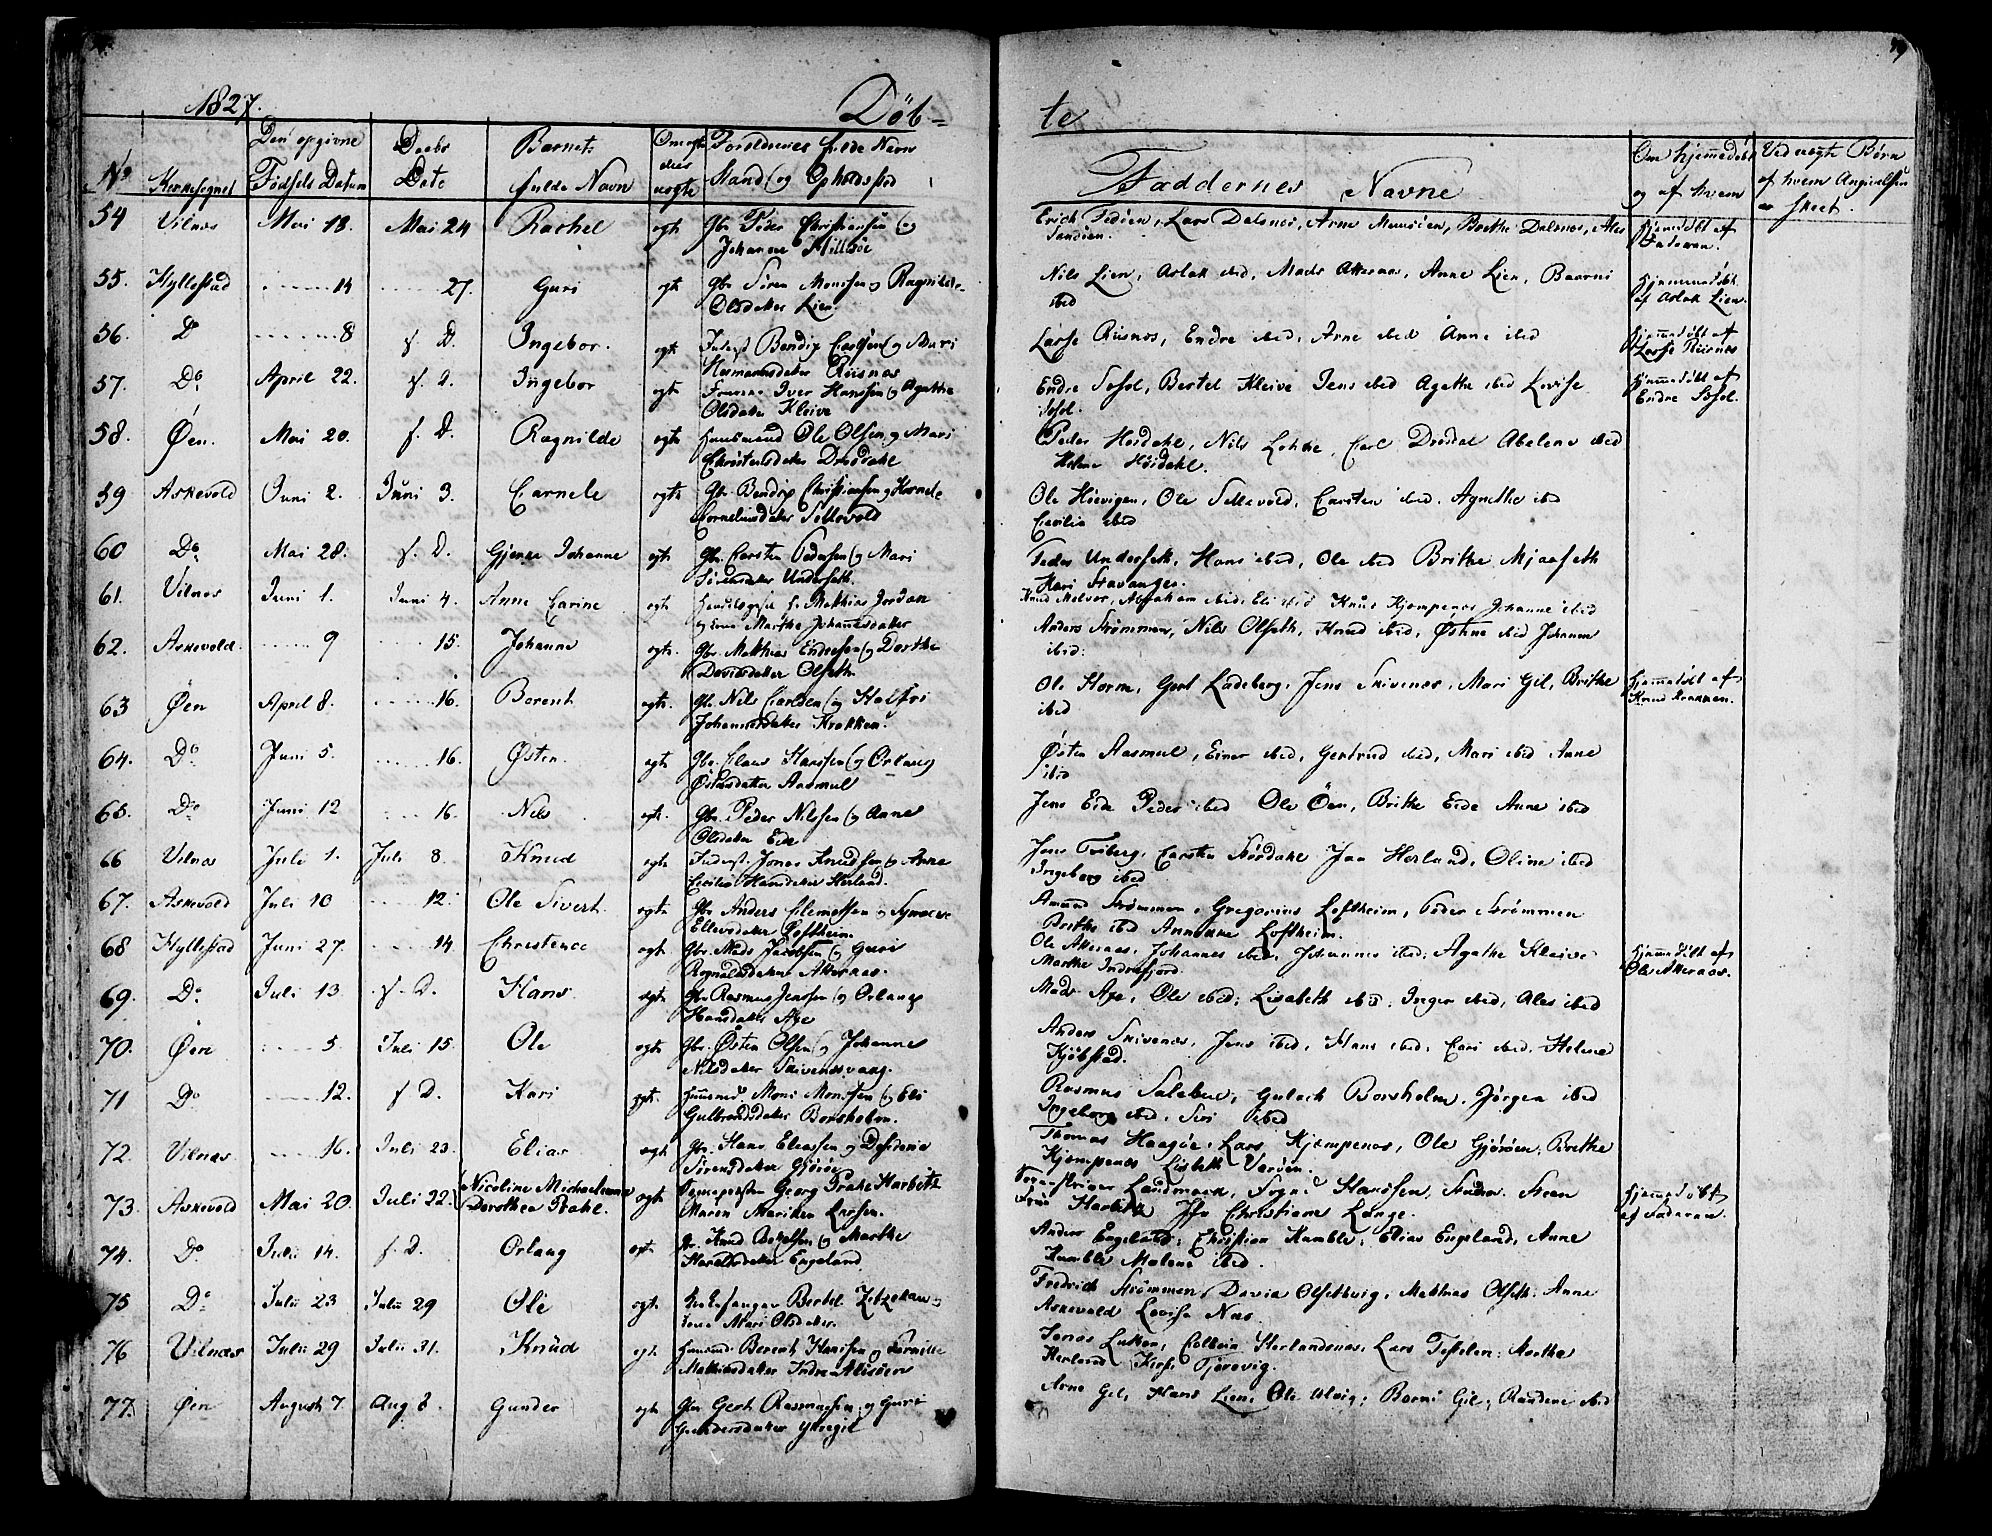 1827.
Döbte
No
Kirkesognet
Den opgivne Fødsels Datum
Daabs Date
Barnets fulde Navn
Om ægte eller uægte
Forældrenes fulde Navn Stand og Opholdsted
Faddernes Navne
Om hjemmedøbt og af hvem
Ved uægte Børn af hvem Angivelsen er skeet.
54 Vilnes Mai 18. Mai 24 Rachel ægte Gbr. Peder Christiansen og
Johanne Hillesøe
Lars Dalsnes, Arne Brithe Dalsnes, Ales
Hjemmedøbt af Faderen.
55. Hyllestad 14 27. Guri ægte Gbr. Sören Monssen og Ragnilde
Olsdatter Lien.
Nils Lien, Aslak ibid, Mads Akernæs, Anne Lien, Baarni
ibid
Hjemmedøbt af Aslak Lien.
56. Do 8 f. D. Ingebor. ægte Inderst Bendix Carlsen og Mari
Hermansdatter Riisnæs
Lasse Riisnæs, Endre ibid, Arne ibid Anne ibid
Hjemmedøbt af Lasse Riisnæs
57. Do April 22. f. D. Ingebor ægte Iver Hanssen og Agathe
Olsdatter Kleive
Endre Sosol, Bertel Kleive Jens ibid Agathe ibid Lovise
Sosol.
Hjemmedøbt af Endre Sosol.
58. Øen. Mai 20. f. D. Ragnilde ægte Huusmand Ole Olsen og Mari
Christensdatter Dresdahl
Peder Høsdahl, Nils Lohne, Carl Dresdal Abelone ibid
Helene Høsdahl.
59 Askevold Juni 2. Juni 3. Carnele ægte Gbr. Bendix Christiansen og Kornele
Corneliusdatter Sellevold
Ole Hisvigen, Ole Sellevold, Carsten ibid, Agnethe ibid
Cecilia ibid
60 Do Mai 28. f. D. Johanne ægte Gbr. Carsten Pedersen og Mari
Sörensdatter Underseth.
Peder Underseth, Hans ibid, Ole ibid Brithe Mjaaseth
Kari Stavanger.
61. Vilnes Juni 1. Juni 4. Anne Carine ægte Mathias Jordan
og Kone Marthe Johannesdatter
Knud Melvær, Abraham ibid, Eli ibid Knud Kjempenes Johanne ibid
62. Askevold. 9 15. Johanne ægte Gbr. Matthias Endresen og Dorthe
Davidsdatter Olseth.
Anders Strømmen, Nils Olseth, Knud ibid, Østine ibid Johanne
ibid.
63 Øen April 8. 16. Berent ægte Gbr. Nils Carlsen og Halfri
Johannesdatter Krakken
Ole Horm, Gert Ladeberg, Jens Skivenæs, Mari Gil, Brithe
ibid
Hjemmedøbt af Knud Krakken.
64. Do Juni 5. 16. Østen. ægte Gbr. Claus Hanssen og Orlaug
Østensdatter Aasmul
Østen Aasmul, Einer ibid, Gertrud ibid, Mari ibid Anne
ibid
65. Do Juni 12 16. Nils ægte Gbr. Peder Nilssen og Anne
Olsdatter Eide
Jens Eide Peder ibid Ole Øen, Brithe Eide Anne ibid
66 Vilnes Juli 1. Juli 8. Knud ægte Inderst. Jonas Knudsen og Anne
Cecilia Hansdatter Herland.
Jens Triberg, Carsten Størdahl Jan Herland, Oline ibid
Ingeborg ibid
67. Askevold Juli 10 12. Ole Sivert ægte Gbr. Anders Clemetsen og Synneve
Ellevsdatter Løftheim
Amund Strømmen, Gregorius Løftheim, Peder Strømmen
Brithe ibid Annanne Løftheim.
68 Hyllestad Juni 27. 14 Christence ægte Gbr. Mads Jacobsen og Guri
Rognaldsdatter Akernæs.
Ole Akernæs, Johannes ibid, Johannes ibid, Agathe Kleive
Marthe Indrefjord.
Hjemmedøbt af Ole Akernæs.
69. Do Juli 13. f. D. Hans ægte Gbr. Rasmus Jenssen og Orlaug
Hansdatter Axe
Mads Axe, Ole ibid, Lisabeth ibid, Inger ibid, Ales ibid
70. Øen 5. Juli 15. Ole ægte Gbr. Østen Olsen og Johanne
Nilsdatter Skivenesvaag.
Anders Skivenes, Jens ibid, Hans ibid, Cari ibid, Helene
Kjøbstad.
71 Do 12. f. D. Kari ægte Huusmd. Mons Monssen og Eli
Gulbrandsdatter Borsholm
Rasmus Salebue, Gulach Borsholm, Jørgen ibid
Ingeborg ibid, Siri ibid
72. Vilnes 16. Juli 23. Elias ægte Gbr. Hans Eliassen og Desideria
Sörensdatter Gjörøe
Thomas Haagøe, Lars Kjempenes, Ole Gjørøen, Brithe
Kjempenes Lisbeth Værøen.
73. Askevold Mai 20. Juli 22. Nicoline Michaeline
Dorothea Prahl. ægte Sognepresten Georg Prahl Harbitz
Maren Mariken Larsen.
Sorenskriver Landmark, Fogd Hanssen, Steen
Frue Harbitz Jfr Christiane Lange.
Hjemmedøbt af Faderen.
74. Do Juli 14. f. D. Orlaug ægte Gbr. Knud Botolfsen og Marthe
Haraldsdatter Engeland
Anders Engeland, Christian Kumble, Elias Engeland, Anne
Kumble Malene ibid.
75 Do Julii 23 Julii 29 Ole ægte Kirkesanger Bertel Zetzeman og
Kone Mari Olsdatter
Fredrich Strømmen David Olsethvig, Mathias Olseth, Anne
Askevold Lovise Næs
76 Vilnæs Julii 29 Julii 31. Knud ægte Huusmd. Berent Hanssen og Pernille
Mathiasdatter Indre Alisöen
Jonas Lutken, Colbein Herlandsnes, Lars Tistelen, Marthe
Herland Kirse Tjørevig.
77. Øen August 7 Aug 8. Gunder ægte Gbr. Gert Rasmussen og Guri
Gundersdatter Ytregil
Arne Gil, Hans Lien, Ole Ulvig, Barni Gil, Randine ibid